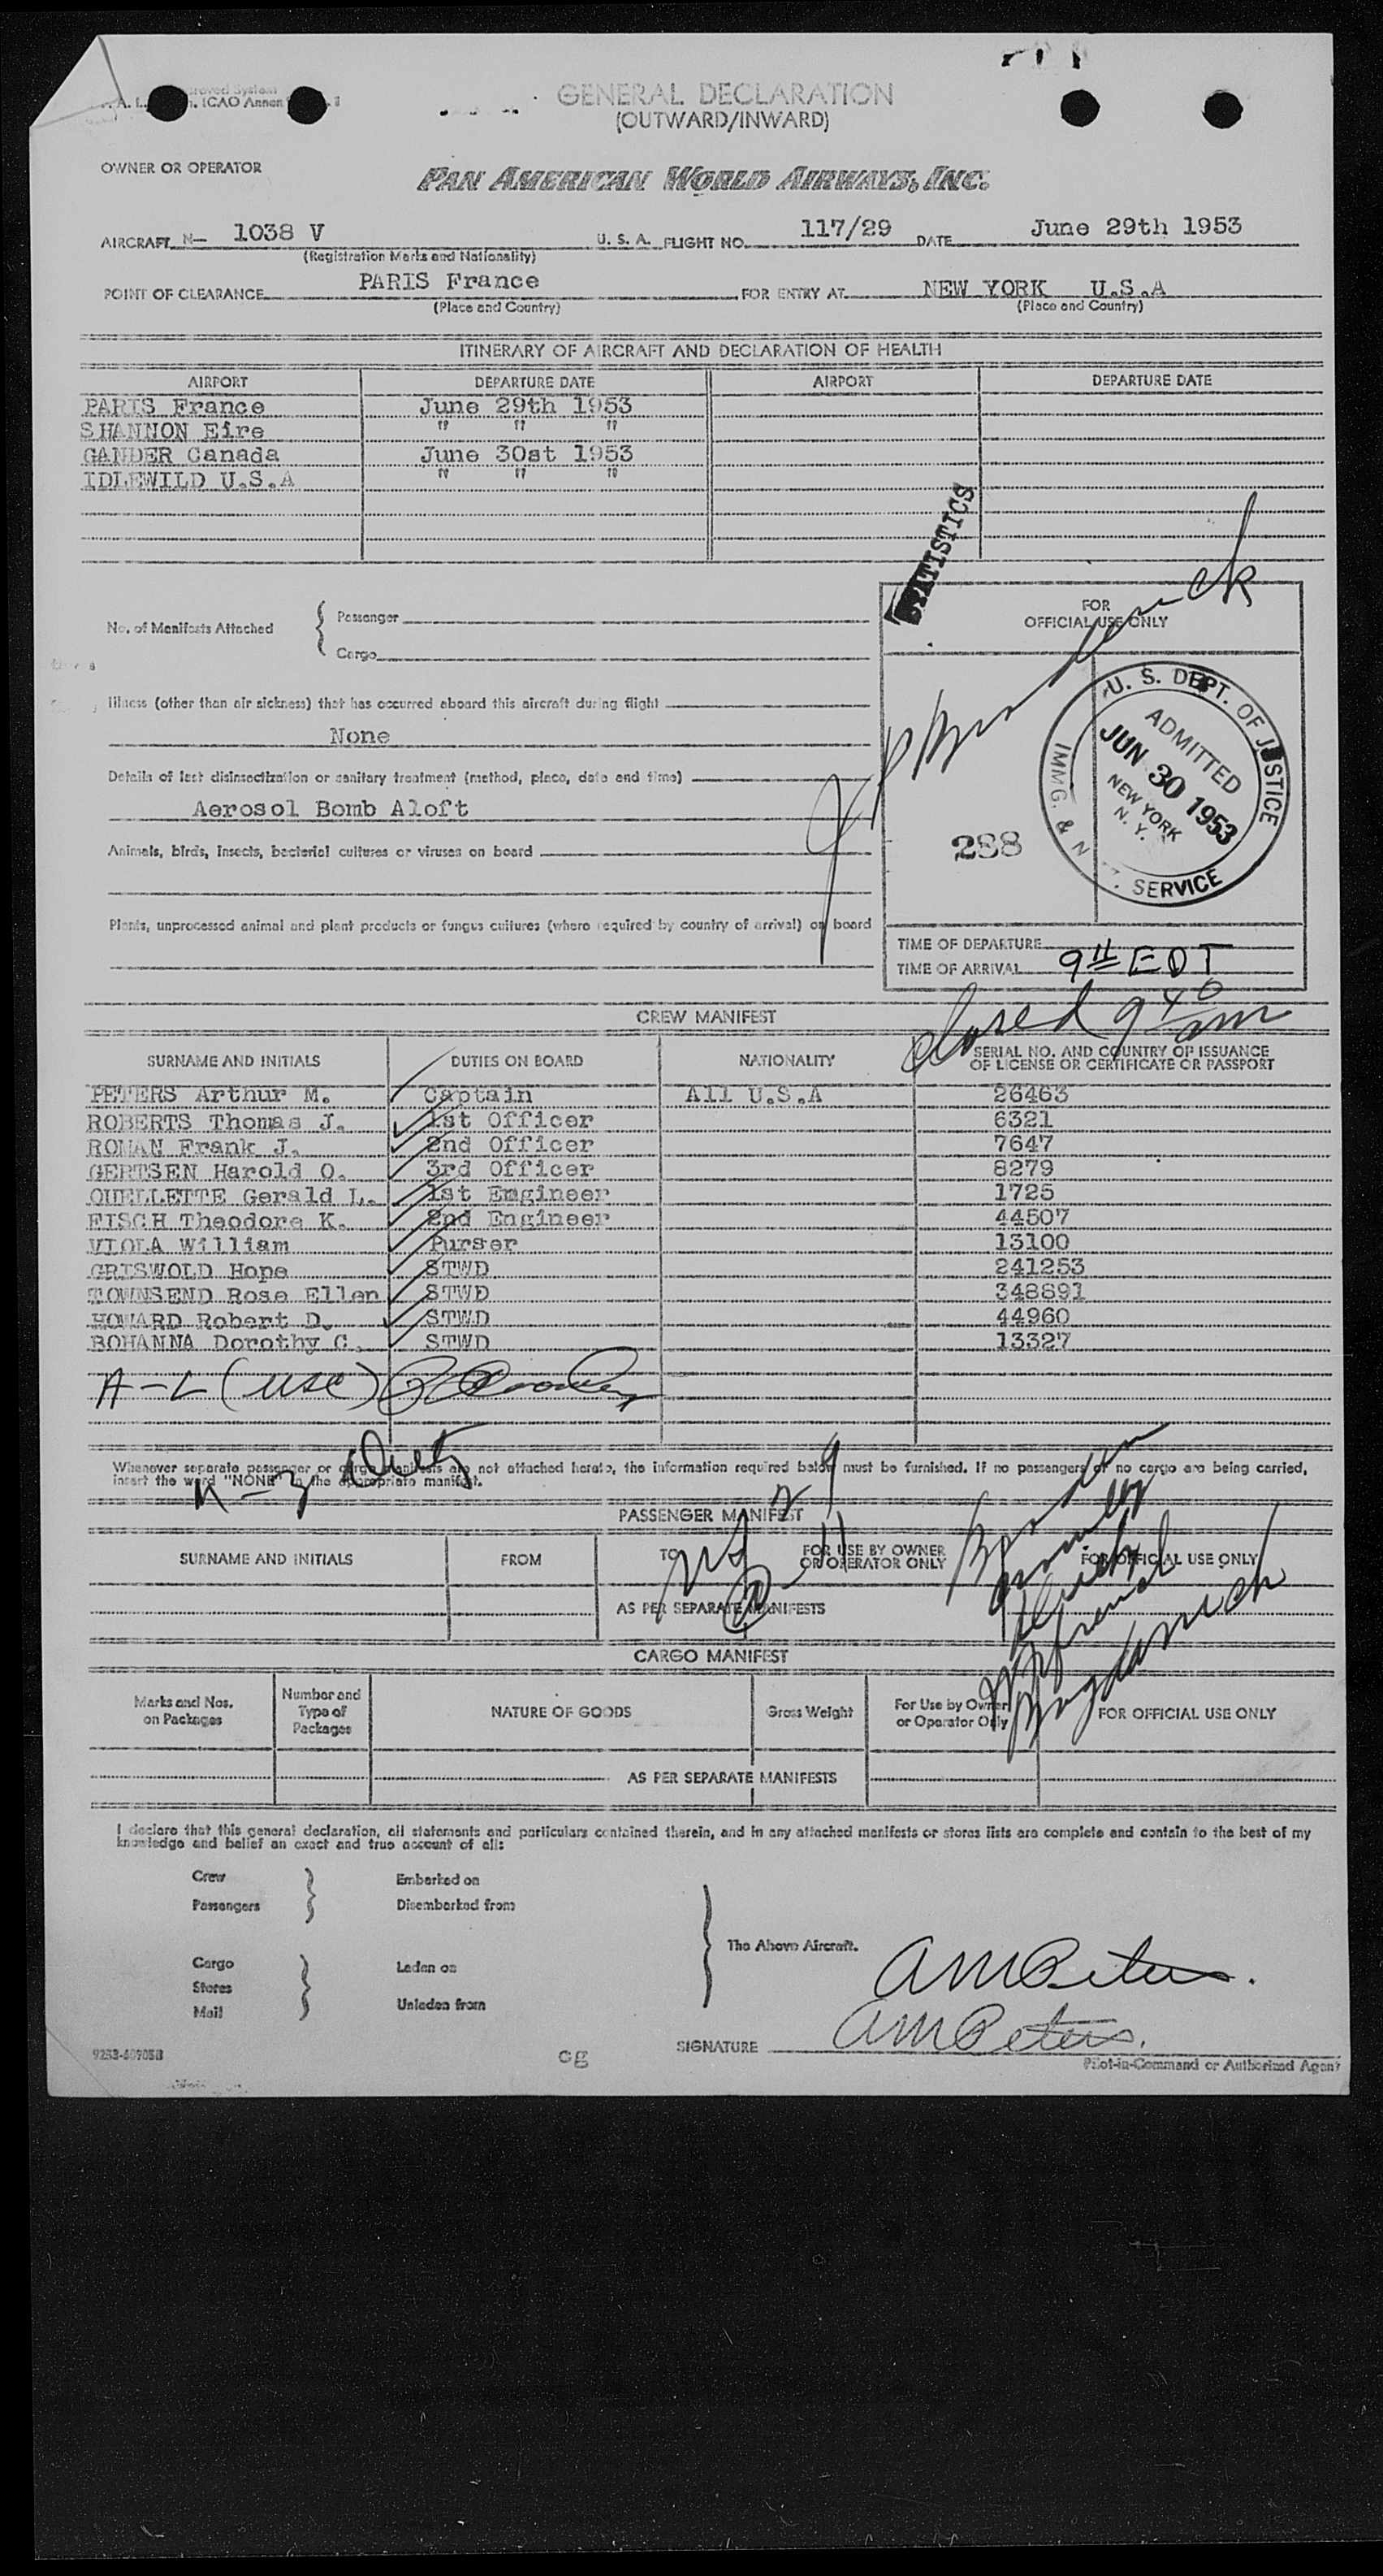 ICAO Annex
GENERAL DECLARATION
(OUTWARD/INWARD)
OWNER OR OPERATOR
PAN AMERICAN WORLD AIRWAYS, INC.
AIRCRAFT N- 1038 V U. S. A. FLIGHT NO. 117/29 DATE June 29th 1953
(Registration Marks and Nationality)
POINT OF CLEARANCE PARIS France FOR ENTRY AT NEW YORK U.S.A
(Place and Country) (Place and Country)
ITINERARY OF AIRCRAFT AND DECLARATION OF HEALTH
AIRPORT DEPARTURE DATE AIRPORT DEPARTURE DATE
PARIS France June 29th 1953
SHANNON Eire " " "
GANDER Canada June 30st 1953
IDLEWILD U.S.A " " "
STATISTICS
No. of Manifests Attached { Passenger
Cargo
FOR
OFFICIAL USE ONLY
Illness (other than air sickness) that has occurred aboard this aircraft during flight
None
Details of last disinsectization or sanitary treatment (method, place, date and time)
Aerosol Bomb Aloft
Animals, birds, insects, bacterial cultures or viruses on board
Plants, unprocessed animal and plant products or fungus cultures (where required by country of arrival) on board
288
U. S. DEPT. OF JUSTICE
ADMITTED
JUN 30 1953
NEW YORK
N. Y.
IMMG. & N SERVICE
TIME OF DEPARTURE
TIME OF ARRIVAL 9 11 EDT
closed 9 40 am
CREW MANIFEST
SURNAME AND INITIALS DUTIES ON BOARD NATIONALITY SERIAL NO. AND COUNTRY OF ISSUANCE
OF LICENSE OR CERTIFICATE OR PASSPORT
PETERS Arthur M. Captain All U.S.A 26463
ROBERTS Thomas J. 1st Officer 6321
ROMAN Frank J. 2nd Officer 7647
GERTSEN Harold O. 3rd Officer 8279
OUELLETTE Gerald L. 1st Engineer 1725
FISCH Theodore K. 2nd Engineer 44507
VIOLA William Purser 13100
GRISWOLD Hope STWD 241253
TOWNSEND Rose Ellen STWD 348891
HOWARD Robert D. STWD 44960
BOHANNA Dorothy C. STWD 13327
A-L (USC)
Whenever separate passenger or cargo manifests are not attached hereto, the information required below must be furnished. If no passengers or no cargo are being carried,
insert the word "NONE" in the appropriate manifest.
PASSENGER MANIFEST
SURNAME AND INITIALS FROM TO FOR USE BY OWNER
OR OPERATOR ONLY FOR OFFICIAL USE ONLY
AS PER SEPARATE MANIFESTS
CARGO MANIFEST
Marks and Nos.
on Packages Number and
Type of
Packages NATURE OF GOODS Gross Weight For Use by Owner
or Operator Only FOR OFFICIAL USE ONLY
AS PER SEPARATE MANIFESTS
I declare that this general declaration, all statements and particulars contained therein, and in any attached manifests or stores lists are complete and contain to the best of my
knowledge and belief an exact and true account of all:
Crew Embarked on
Passengers Disembarked from
The Above Aircraft.
Cargo Laden on
Stores
Mail Unladen from
AMPeters.
SIGNATURE AMPeters.
Pilot-in-Command or Authorized Agent
cg